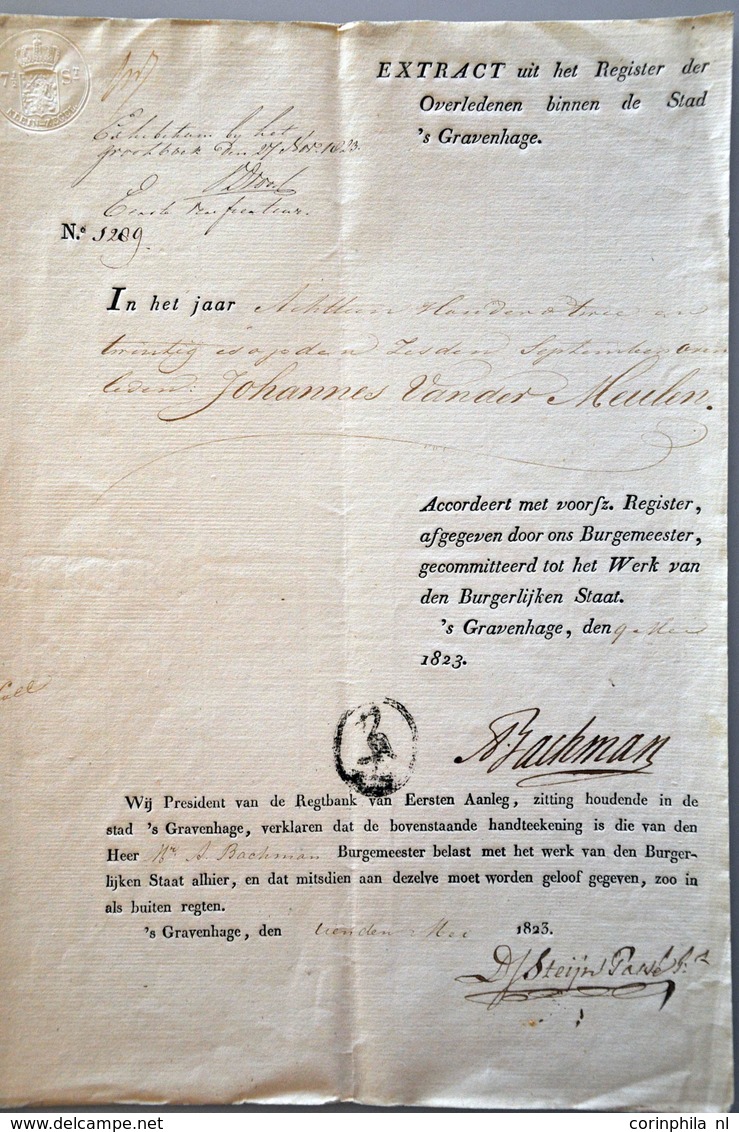 EXTRACT uit het Register der
Overledenen binnen de Stad
's Gravenhage.
7½ ST
by het
grootboek den 27 1823.
Eerste verificateur.
N.º 1289.
In het jaar Achttien Honderd twee en
twintig is op den Zesden September over
leden: Johannes Vander Meulen.
Accordeert met voorſz. Register,
afgegeven door ons Burgemeester,
gecommitteerd tot het Werk van
den Burgerlijken Staat.
's Gravenhage, den 9 Mei
1823.
A Bachman
Wij President van de Regtbank van Eersten Aanleg, zitting houdende in de
stad 's Gravenhage, verklaren dat de bovenstaande handteekening is die van den
Heer Mr. A. Bachman Burgemeester belast met het werk van den Burger-
lijken Staat alhier, en dat mitsdien aan dezelve moet worden geloof gegeven, zoo in
als buiten regten.
's Gravenhage, den tienden Mei 1823.
corinphila nl